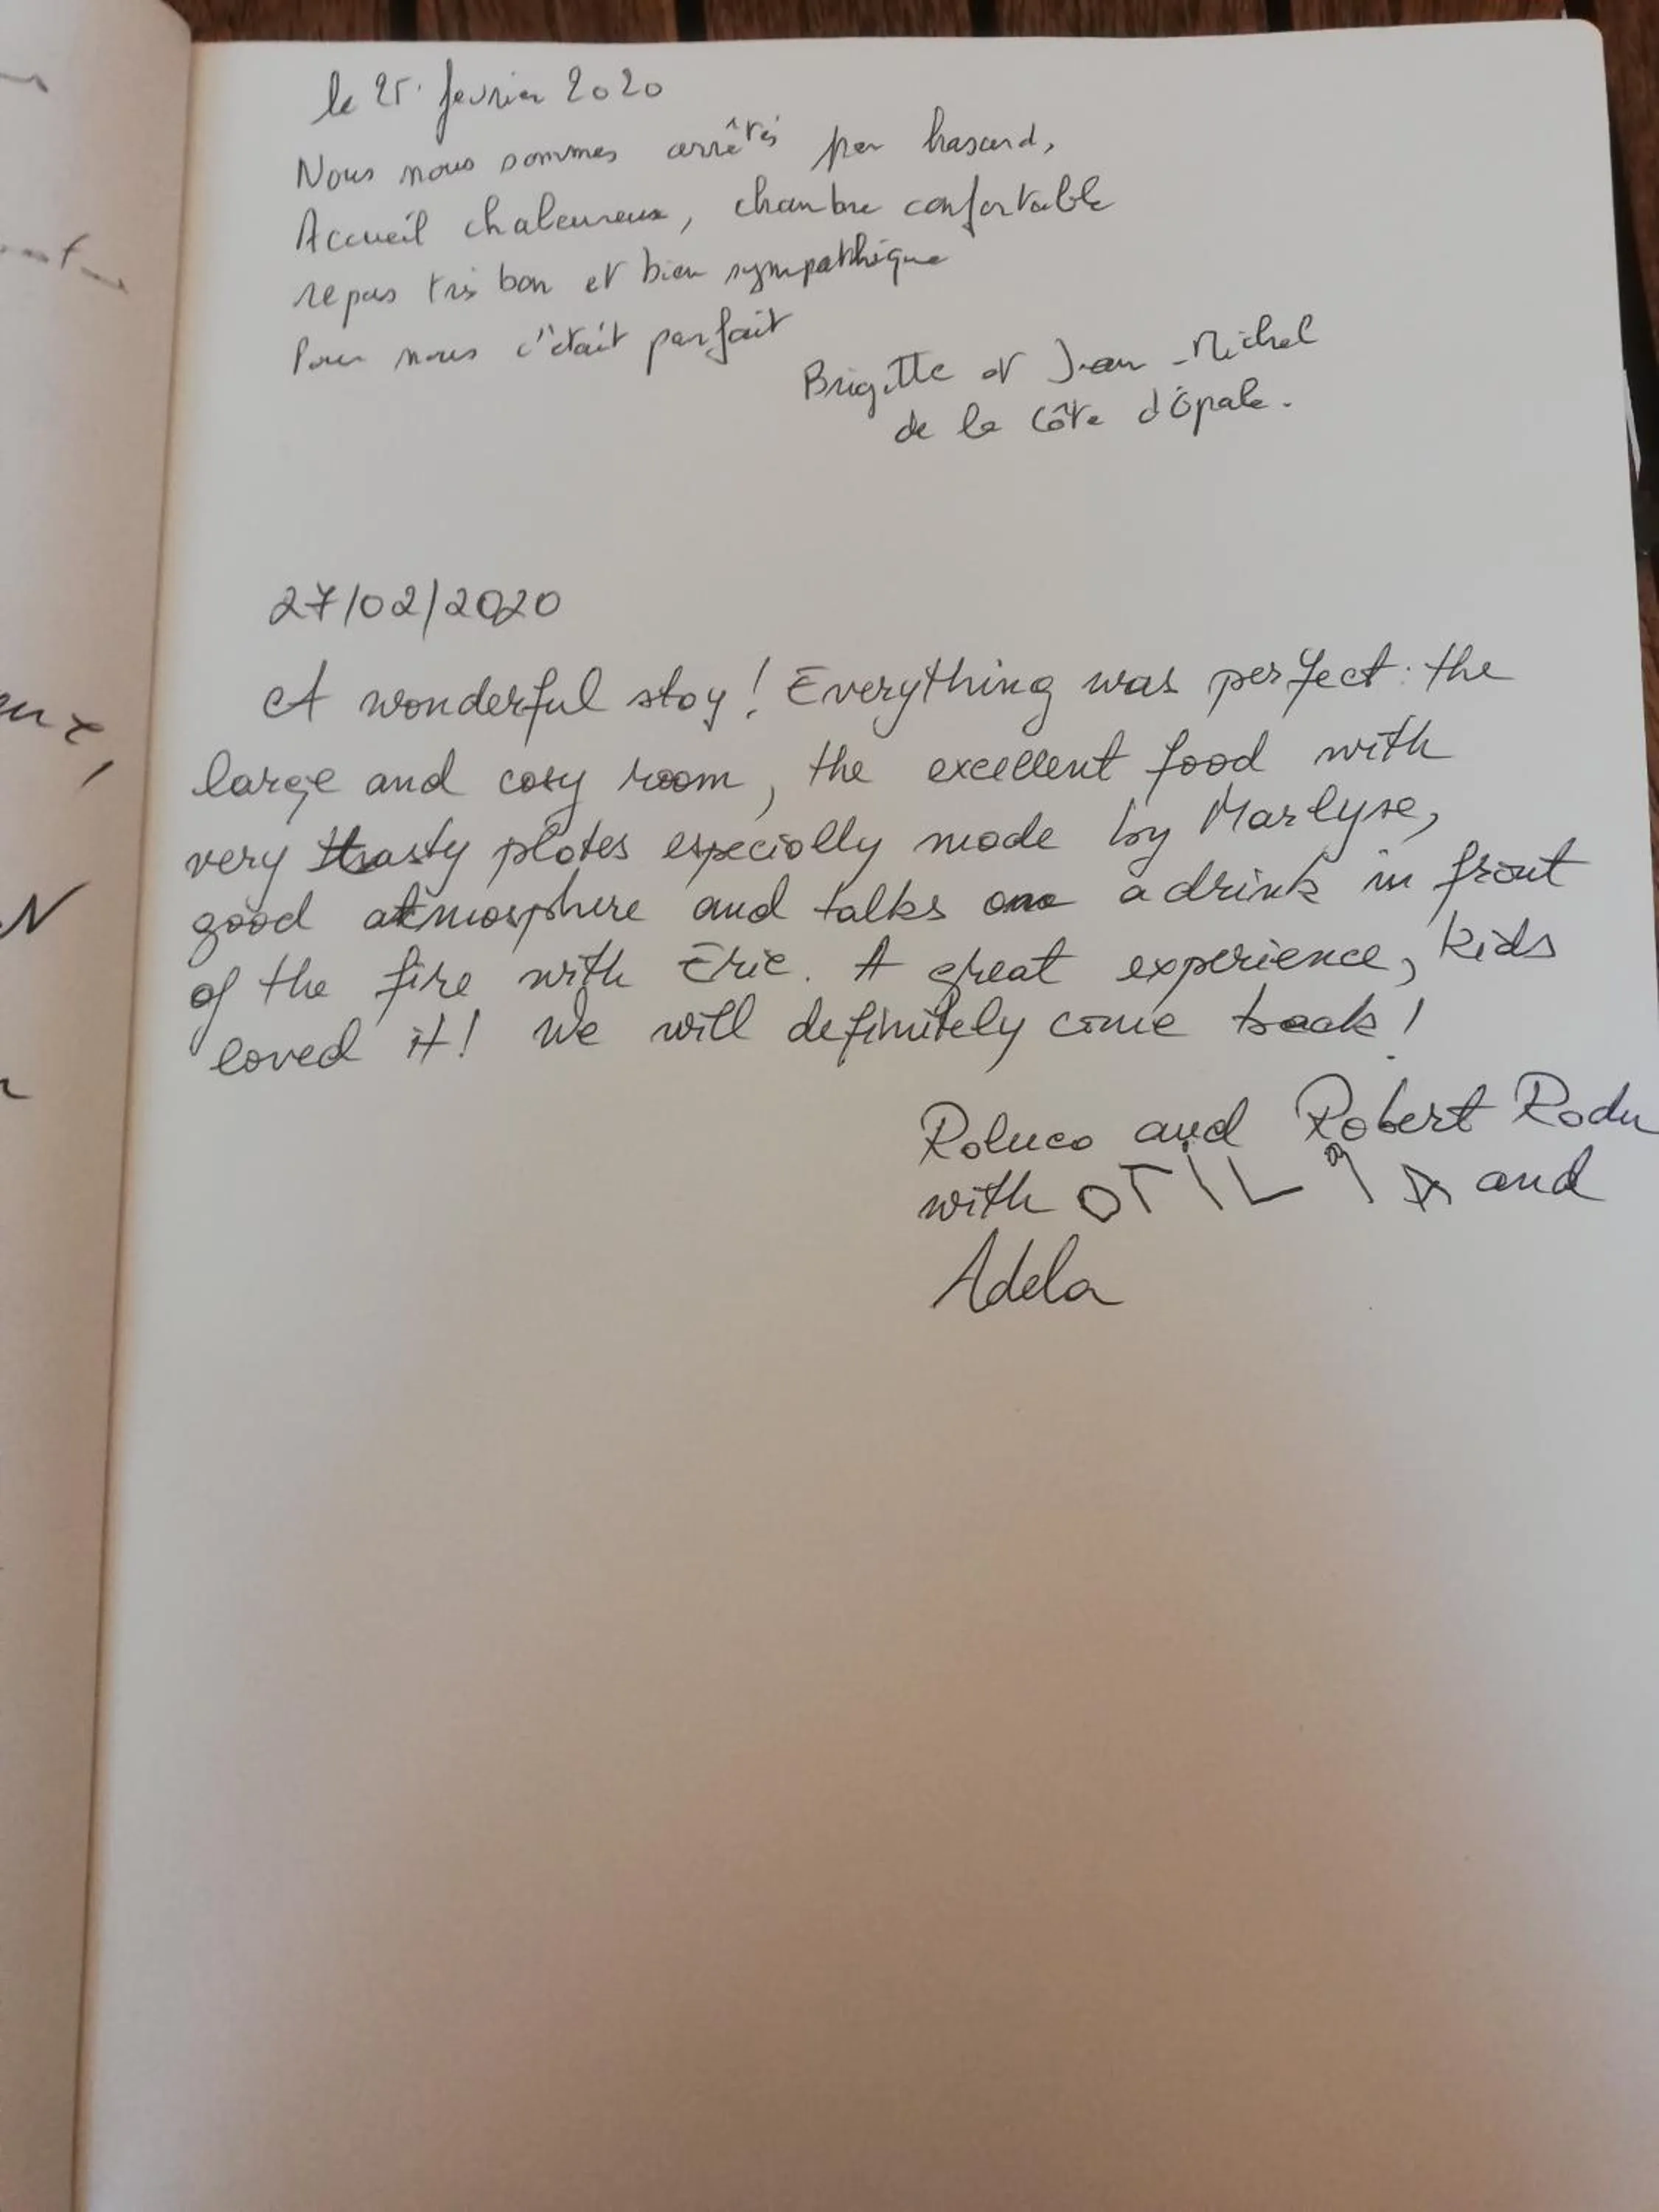 le 25 fevrier 2020
Nous nous sommes arrêtés par hasard,
Accueil chaleureux, chambre confortable
repas très bon et bien sympathique
Pour nous c'était parfait
Brigitte et Jean-Michel
de la Côte d'Opale.
27/02/2020
A wonderful stay! Everything was perfect: the
large and cosy room, the excellent food with
very tasty plates especially made by Marlyse,
good atmosphere and talks a drink in front
of the fire with Eric. A great experience, kids
loved it! We will definitely come back!
and Robert Radu
with OTILIA and
Adela